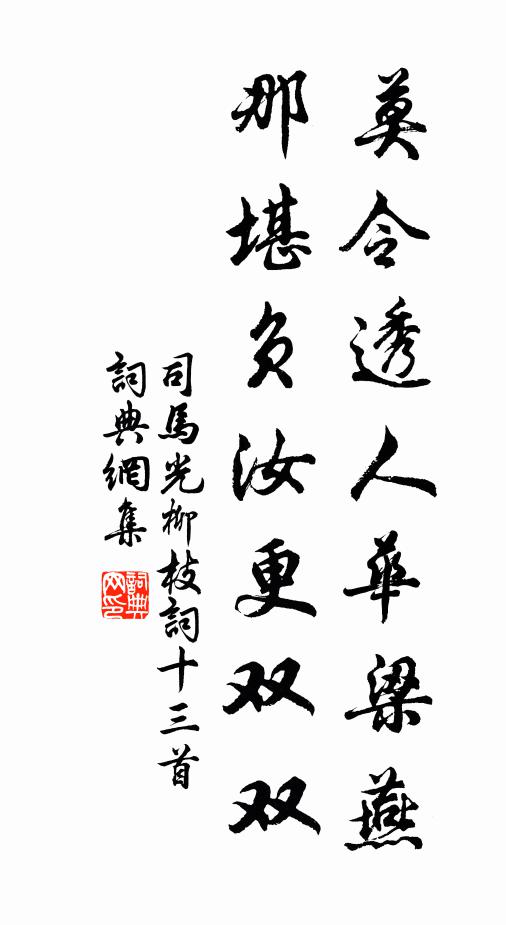 莫令透人华梁燕
那堪負汝更双双
司馬光柳枝詞十三首
詞典網集
詞典網印